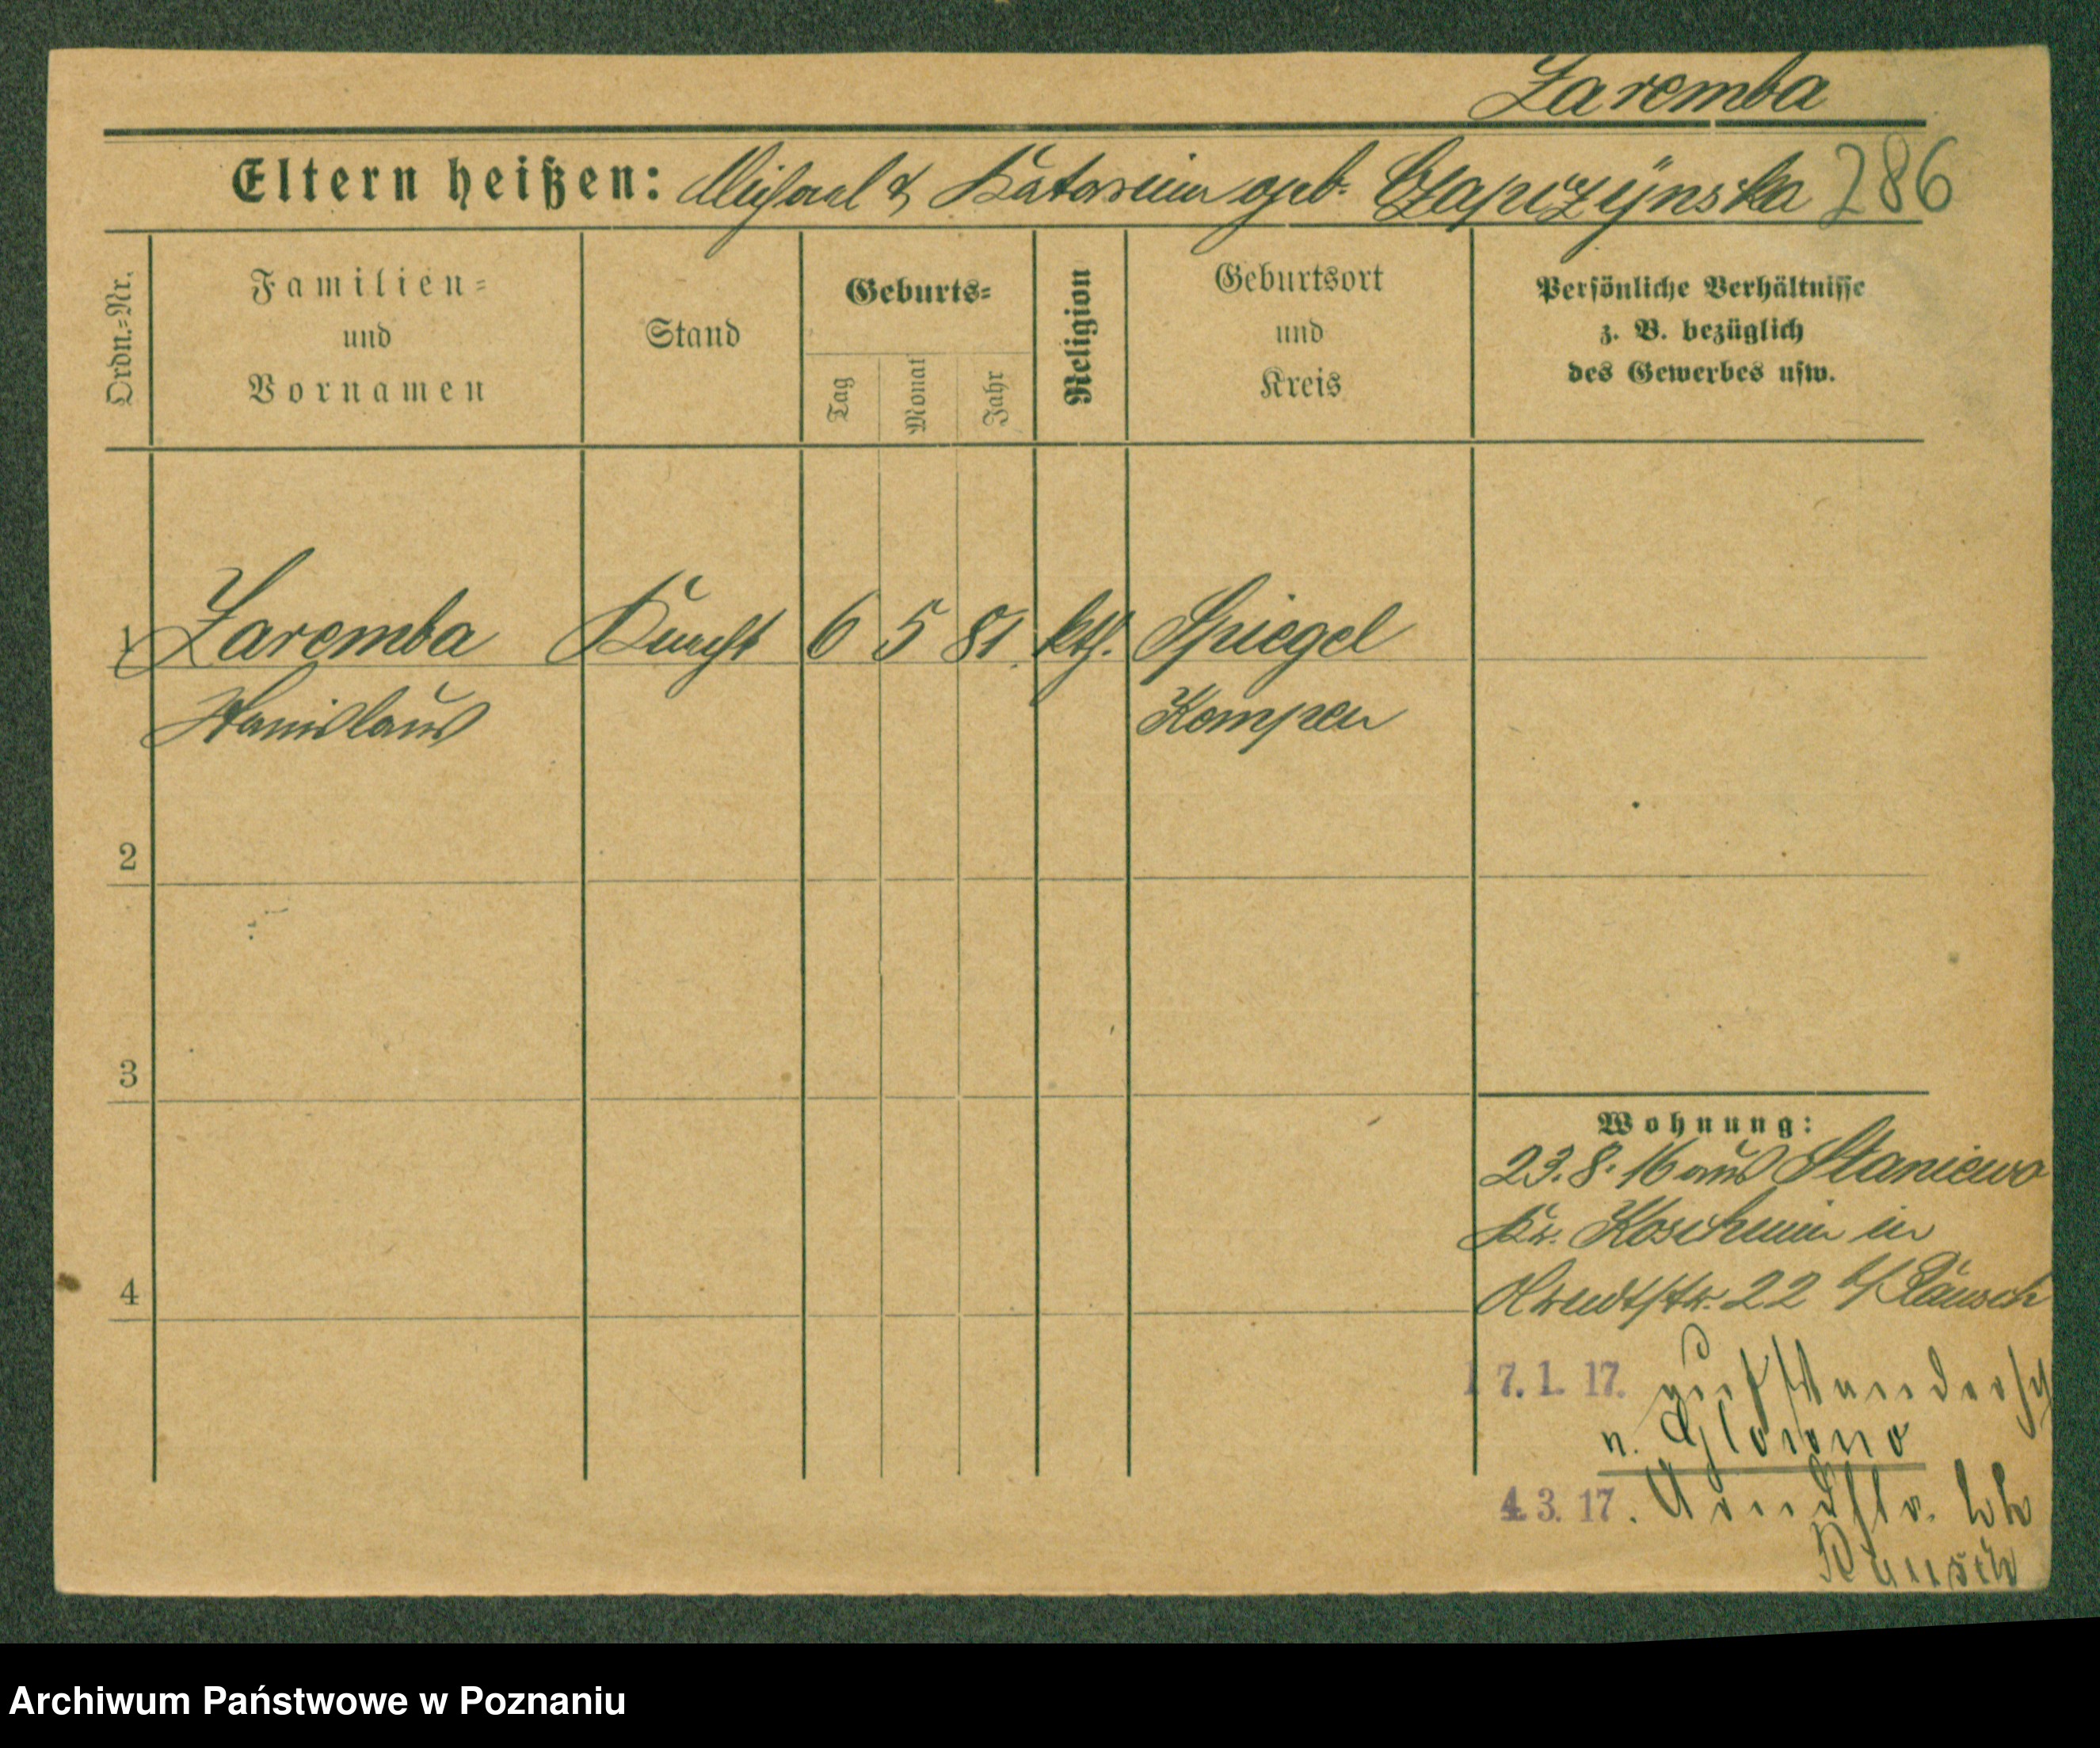 Zaremba
Eltern heißen: Michael & Katarina geb. Czapczynska 286
Ordn.-Nr.
Familien-
und
Vornamen
Stand
Geburts-
Tag
Monat
Jahr
Religion
Geburtsort
und
Kreis
Persönliche Verhältnisse
z. B. bezüglich
des Gewerbes usw.
1 Zaremba Knecht 6 5 81. kth. Spiegel
Stanislaus Kempen
2
3
4
Wohnung:
23.8.16 aus Staniewo
Kr. Koschmin in
22 b/
17. 1. 17. auf
n.
4. 3. 17.
Archiwum Państwowe w Poznaniu